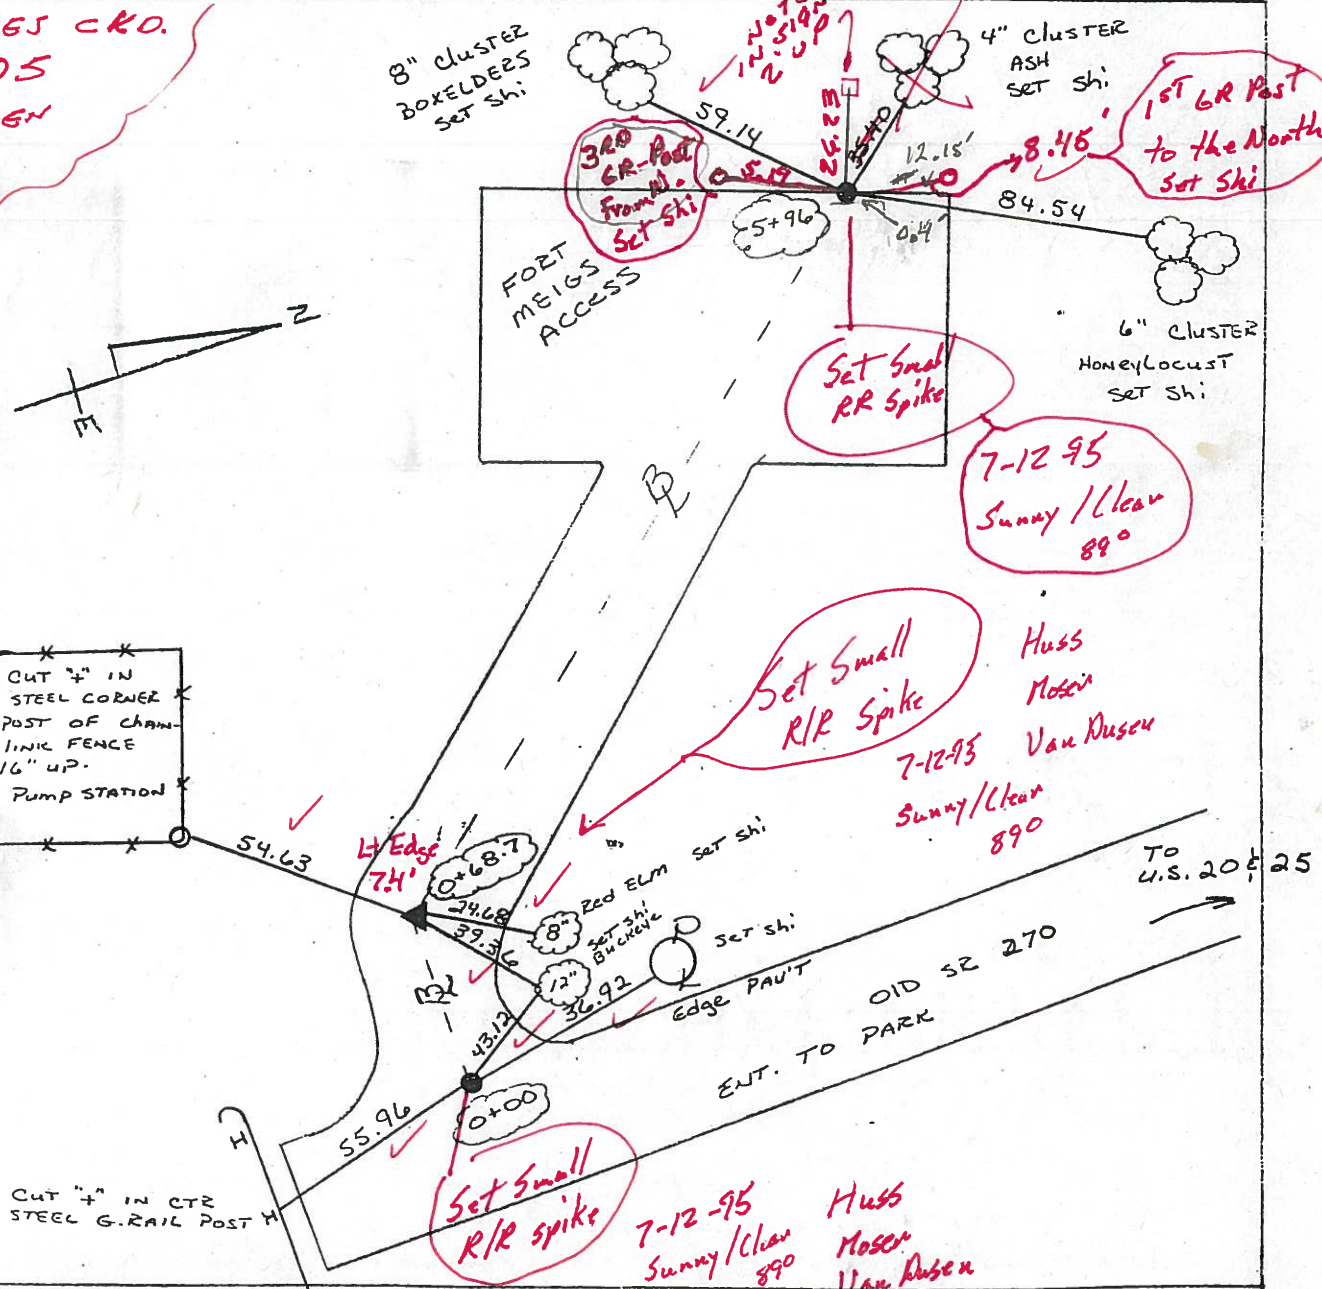 ES CRD.
05
EN
8" CLUSTER
BOXELDERS
SET Shi
4" CLUSTER
ASH
SET Shi
1ST GR Post
to the North
Set Shi
59.14
35.40
12.15'
8.45'
84.54
3RD
GR-Post
From
Set Shi
15.19
5+96
0.4'
FORT
MEIGS
ACCESS
N
6" CLUSTER
HONEYLOCUST
SET Shi
Set Small
RR Spike
7-12-95
Sunny/Clear
89°
BL
Set Small
R/R Spike
Huss
Moser
Van Dusen
7-12-95
Sunny/Clear
89°
CUT "+" IN
STEEL CORNER
POST OF CHAIN-
LINK FENCE
16" UP.
PUMP STATION
54.63
Lt Edge
7.4'
0+68.7
24.68
39.36
8"
Red ELM SET Shi
12"
SET Shi
BUCKEYE
SET Shi
36.92
43.12
BL
Edge PAV'T
TO
U.S. 20 & 25
OLD SR 270
ENT. TO PARK
55.96
0+00
CUT "+" IN CTR
STEEL G.RAIL POST
Set Small
R/R Spike
7-12-95
Sunny/Clear
89°
Huss
Moser
Van Dusen